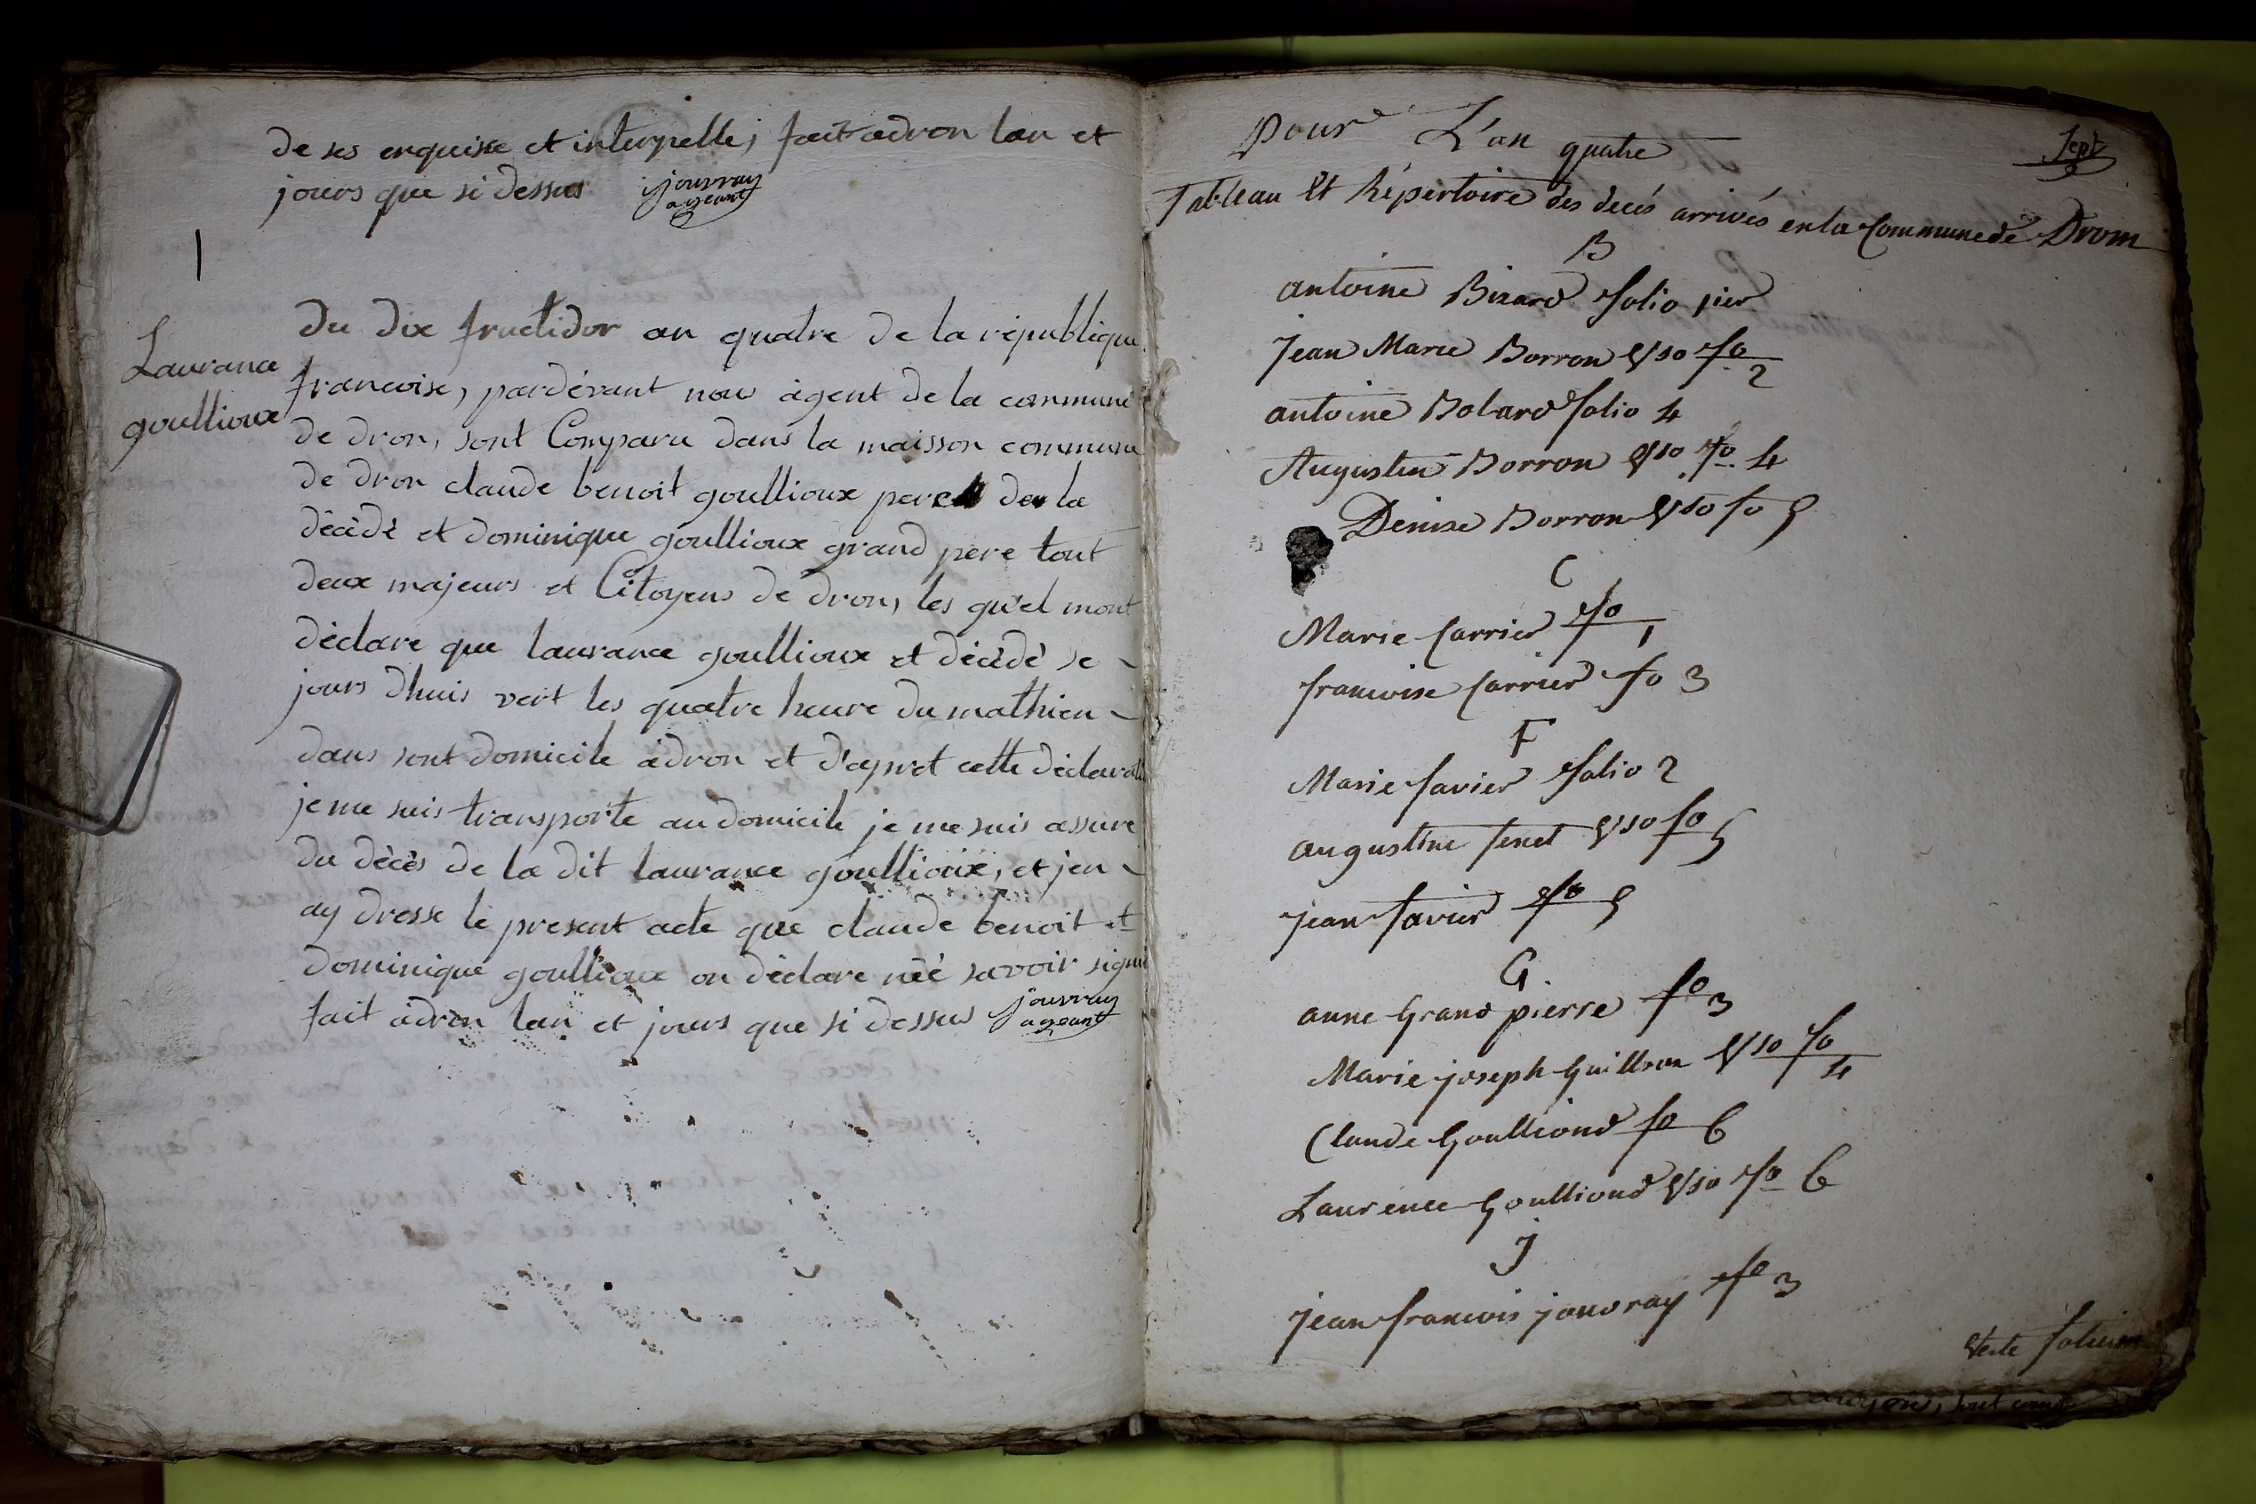 de ses enquise et interpelle, fait adron lan et
jours que si dessus jouvray
ageant
Laurance
goullioux
du dix fructidor an quatre de la république
francoise, pardévant nous àgent de la commune
de dron, sont Comparu dans la maisson commune
de dron claude benoit goullioux pere de la
décédé et dominique goullioux grand pere tout
deux majeurs et Citoyens de dron, les quel mont
déclare que laurance goullioux et décédé se
jours dhuis vert les quatre heure du mathien
dans sont domicile àdron et d'apret cette déclarat
je me suis transporte au domicile je me suis assure
du décès de la dit laurance goullioux, et jen
ay dresse le present acte que claude benoit et
dominique goullioux on déclare néé savoir signé
fait àdron lan et jours que si dessus jouvray
ageant
Sept
pour L'an quatre
Tableau Et Répertoire des decés arrivés en la Commune de Drom
B
antoine Bizard folio pier
Jean Marie Borron Vso fo 2
antoine Bolard folio 4
Augustin Borron Vso fo 4
Denise Borron Vso fo 5
C
Marie Carrier fo 1
francoise Carrier fo 3
F
Marie favier folio 2
augustine fenet Vso fo 5
jean favier fo 5
G
anne Grand pierre fo 3
Marie joseph Guillon Vso fo 4
Claude Goulliond fo 6
Laurence Goulliond Vso fo 6
J
jean francois jouvray fo 3